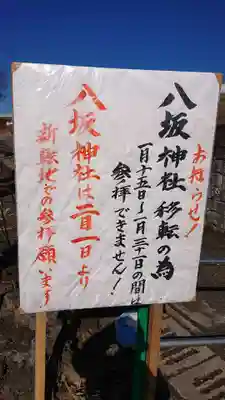 お知らせ！
八坂神社移転の為
一月十五日〜一月三十一日の間は
参拝できません！
八坂神社は二月一日より
新転地での参拝願います